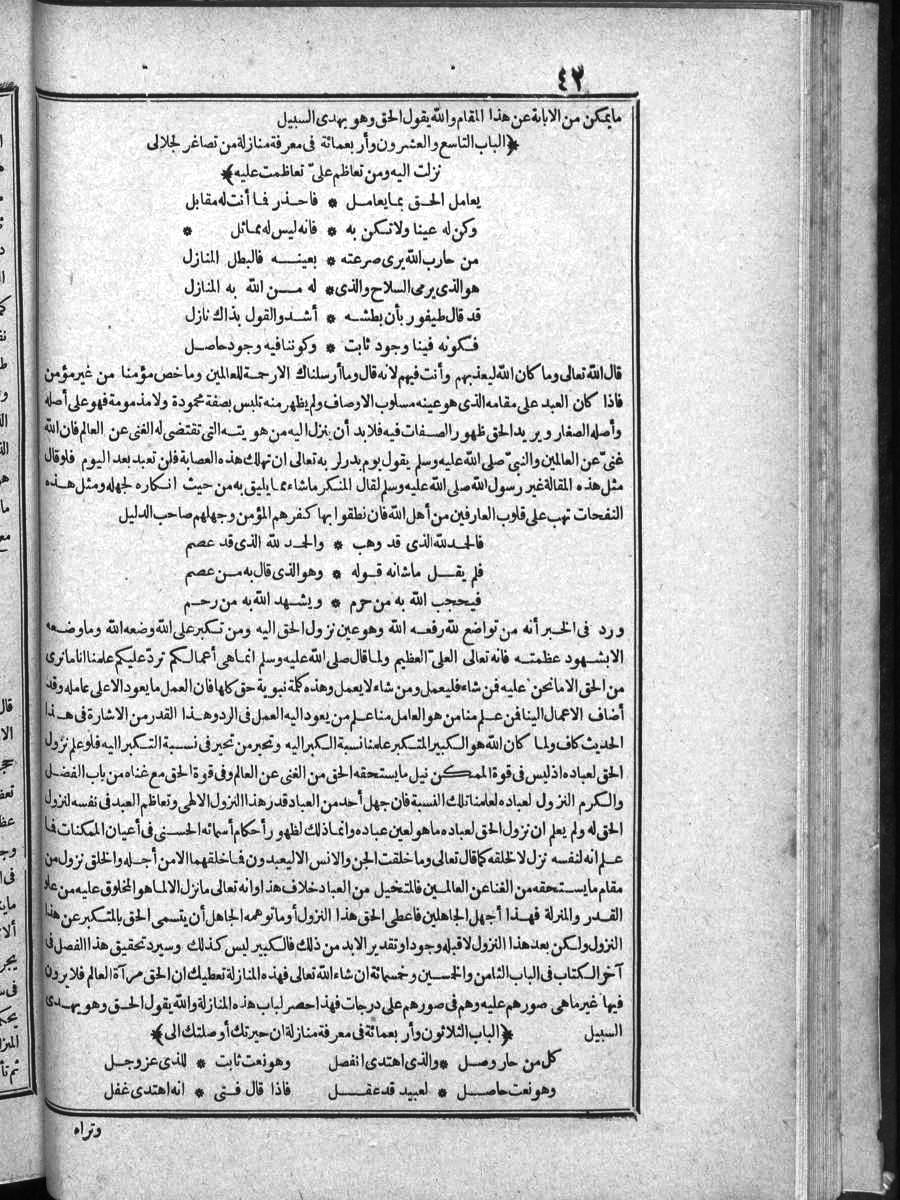 ٤٢
ما يمكن من الابانة عن هذا المقام والله يقول الحق وهو يهدى السبيل
﴿الباب التاسع والعشرون وأربعمائة فى معرفة منازلة من تصاغر لجلالى
نزلت اليه ومن تعاظم علىّ تعاظمت عليه﴾
يعامل الحق بما يعامل * فاحذر فما أنت له مقابل
وكن له عينا ولا تكن به * فانه ليس له مماثل *
من حارب الله يرى صرعته * بعينه فالبطل المنازل
هو الذى يرمى السلاح والذى * له من الله به المنازل
قد قال طيفور بأن بطشه * أشد والقول بذاك نازل
فكونه فينا وجود ثابت * وكوننا فيه وجود حاصل
قال الله تعالى وما كان الله ليعذبهم وأنت فيهم لانه قال وما أرسلناك الا رحمة للعالمين وما خص مؤمنا من غير مؤمن
فاذا كان العبد على مقامه الذى هو عينه مسلوب الاوصاف ولم يظهر منه تلبس بصفة محمودة ولا مذمومة فهو على أصله
وأصله الصغار ويريد الحق ظهور الصفات فيه فلا بد أن ينزل اليه من هويته التى تقتضى له الغنى عن العالم فان الله
غنىّ عن العالمين والنبىّ صلى الله عليه وسلم يقول يوم بدر لربه تعالى ان تهلك هذه العصابة فلن تعبد بعد اليوم فلو قال
مثل هذه المقالة غير رسول الله صلى الله عليه وسلم لقال المنكر ما شاء مما يليق به من حيث انكاره لجهله ومثل هذه
النفحات تهب على قلوب العارفين من أهل الله فان نطقوا بها كفرهم المؤمن وجهلهم صاحب الدليل
فالحمد لله الذى قد وهب * والحمد لله الذى قد عصم
فلم يقل ما شانه قوله * وهو الذى قال به من عصم
فيحجب الله به من حرم * ويشهد الله به من رحم
ورد فى الخبر أنه من تواضع لله رفعه الله وهو عين نزول الحق اليه ومن تكبر على الله وضعه الله وما وضعه
الا بشهود عظمته فانه تعالى العلىّ العظيم ولما قال صلى الله عليه وسلم انما هى أعمالكم تردّ عليكم علمنا انا ما نرى
من الحق الا ما نحن عليه فمن شاء فليعمل ومن شاء لا يعمل وهذه كلمة نبوية حق كلها فان العمل ما يعود الا على عامله وقد
أضاف الاعمال الينا فمن علم منا من هو العامل منا علم من يعود اليه العمل فى الرد وهذا القدر من الاشارة فى هذا
الحديث كاف ولما كان الله هو الكبير المتكبر علمنا نسبة الكبر اليه وتحير من تحير فى نسبة التكبر اليه فلو علم نزول
الحق لعباده اذ ليس فى قوة الممكن نيل ما يستحقه الحق من الغنى عن العالم وفى قوة الحق مع غناه من باب الفضل
والكرم النزول لعباده لعلمنا تلك النسبة فان جهل أحد من العباد قدر هذا النزول الالهى وتعاظم العبد فى نفسه لنزول
الحق له ولم يعلم ان نزول الحق لعباده ما هو لعين عباده وانما ذلك لظهور أحكام أسمائه الحسنى فى أعيان الممكنات فما
علم انه لنفسه نزل لا لخلقه كما قال تعالى وما خلقت الجن والانس الا ليعبدون فما خلقهما الا من أجله والخلق نزول من
مقام ما يستحقه من الغنا عن العالمين فالمتخيل من العباد خلاف هذا وانه تعالى ما نزل الا لما هو المخلوق عليه من علو
القدر والمنزلة فهذا أجهل الجاهلين فاعطى الحق هذا النزول أو ما توهمه الجاهل أن يتسمى الحق بالمتكبر عن هذا
النزول ولكن بعد هذا النزول لا قبله وجودا وتقدير الا بد من ذلك فالكبير ليس كذلك وسيرد تحقيق هذا الفصل فى
آخر الكتاب فى الباب الثامن والخمسين وخمسمائة ان شاء الله تعالى فهذه المنازلة تعطيك ان الحق مرآة العالم فلا يرون
فيها غير ما هى صورهم عليه وهم فى صورهم على درجات فهذا حصر لباب هذه المنازلة والله يقول الحق وهو يهدى
السبيل ﴿الباب الثلاثون وأربعمائة فى معرفة منازلة ان حيرتك أوصلتك الى﴾
كل من حار وصل * والذى اهتدى انفصل وهو نعت ثابت * للذى عز وجل
وهو نعت حاصل * لعبيد قد عقل فاذا قال فتى * انه اهتدى غفل
وتراه